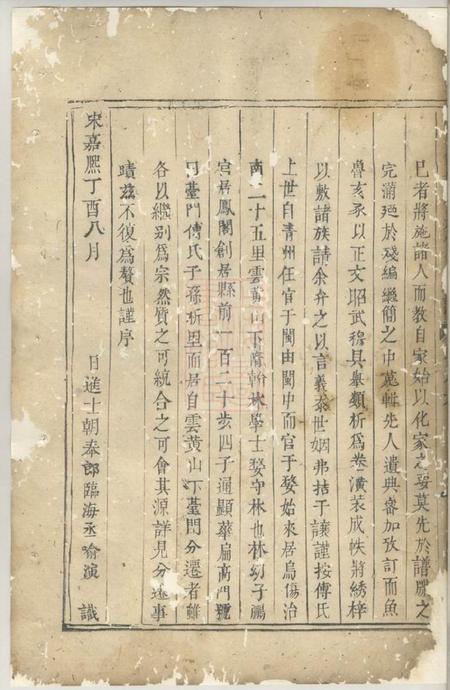 巳者將施諸人而教自家始以化家之要莫先於譜牒之
完蒲廼於殘編繼簡之中蒐輯先人遺典審加攷訂而魚
魯亥豕以正文昭武穆具舉類析爲卷潢裝成帙將綉梓
以敷諸族請余弁之以言義忝世姻弗拮于讓謹按傅氏
上世自青州任官于閩由閩中而官于婺始來居烏傷治
南二十五里雲黄山下齊翰林學士婺守林也林幼子鵬
官居鳳閣創居縣前一百二十步四子通顯華扁高門號
曰臺門傅氏子孫析里而居自雲黄山下臺門分遷者雖
各以繼别爲宗然質之可統合之可會其源詳見分遷事
蹟兹不復爲贅也謹序
宋嘉熙丁酉八月 日進士朝奉郎臨海丞喻演 識